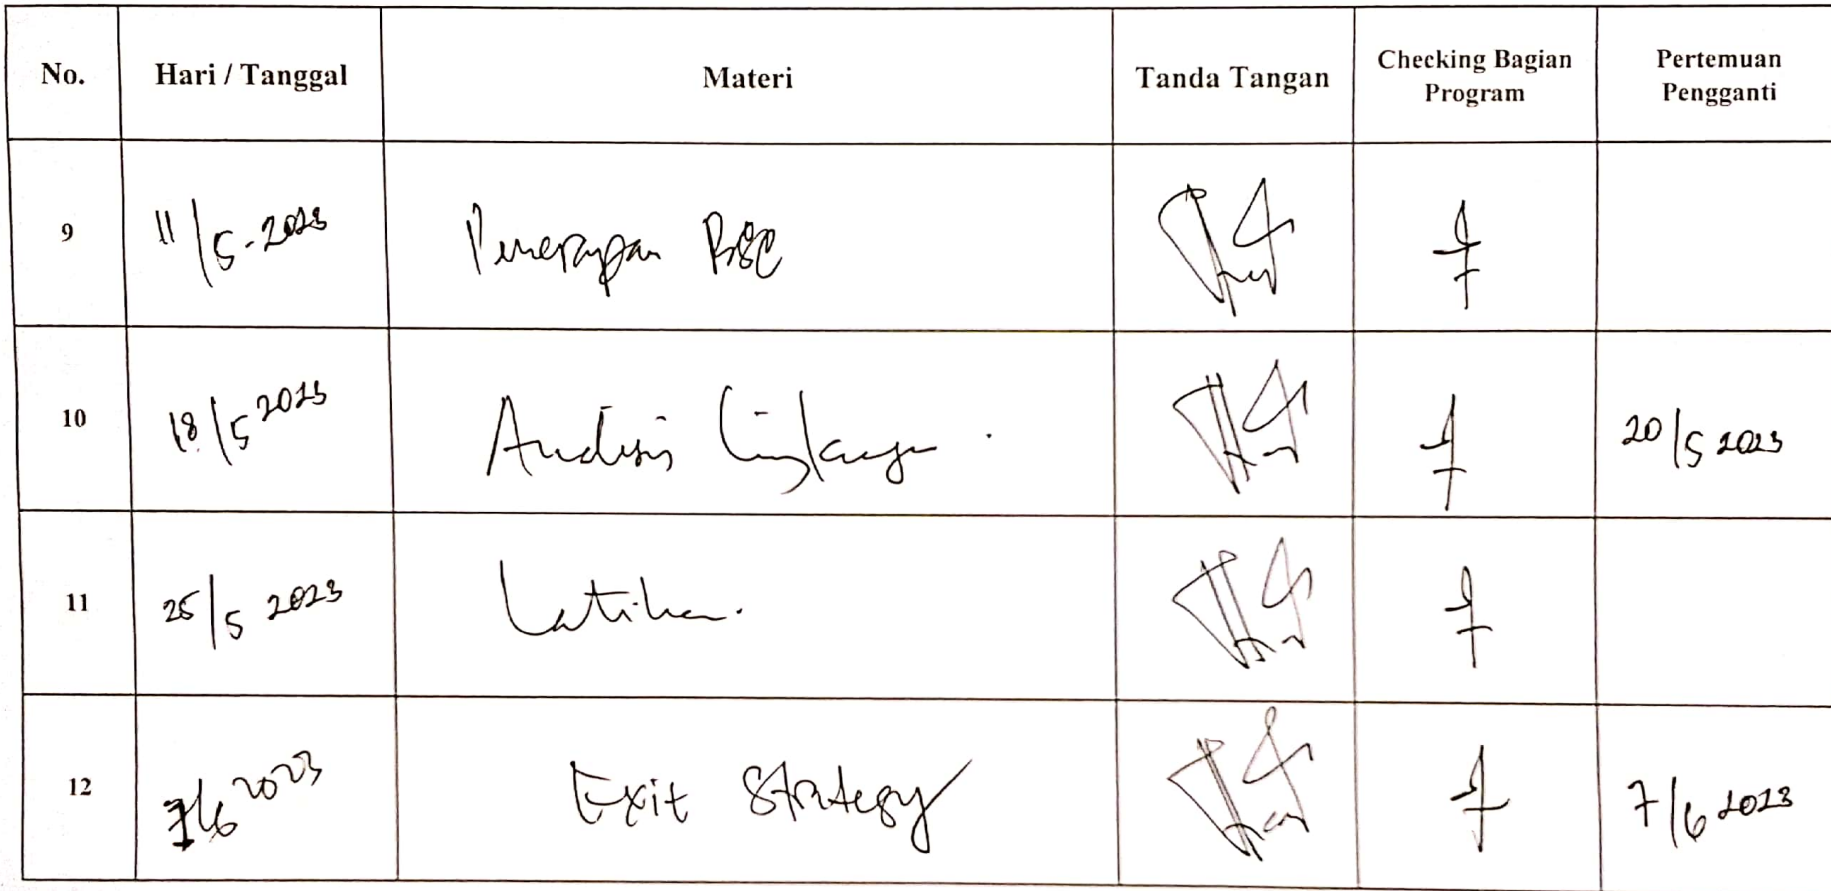 No. Hari / Tanggal Materi Tanda Tangan Checking Bagian Program Pertemuan Pengganti
9 11/5-2023 Penerapan BSC
10 18/5 2023 Analisis Lingkungan. 20/5 2023
11 25/5 2023 Latihan.
12 /6 2023 Exit Strategy 7/6 2023